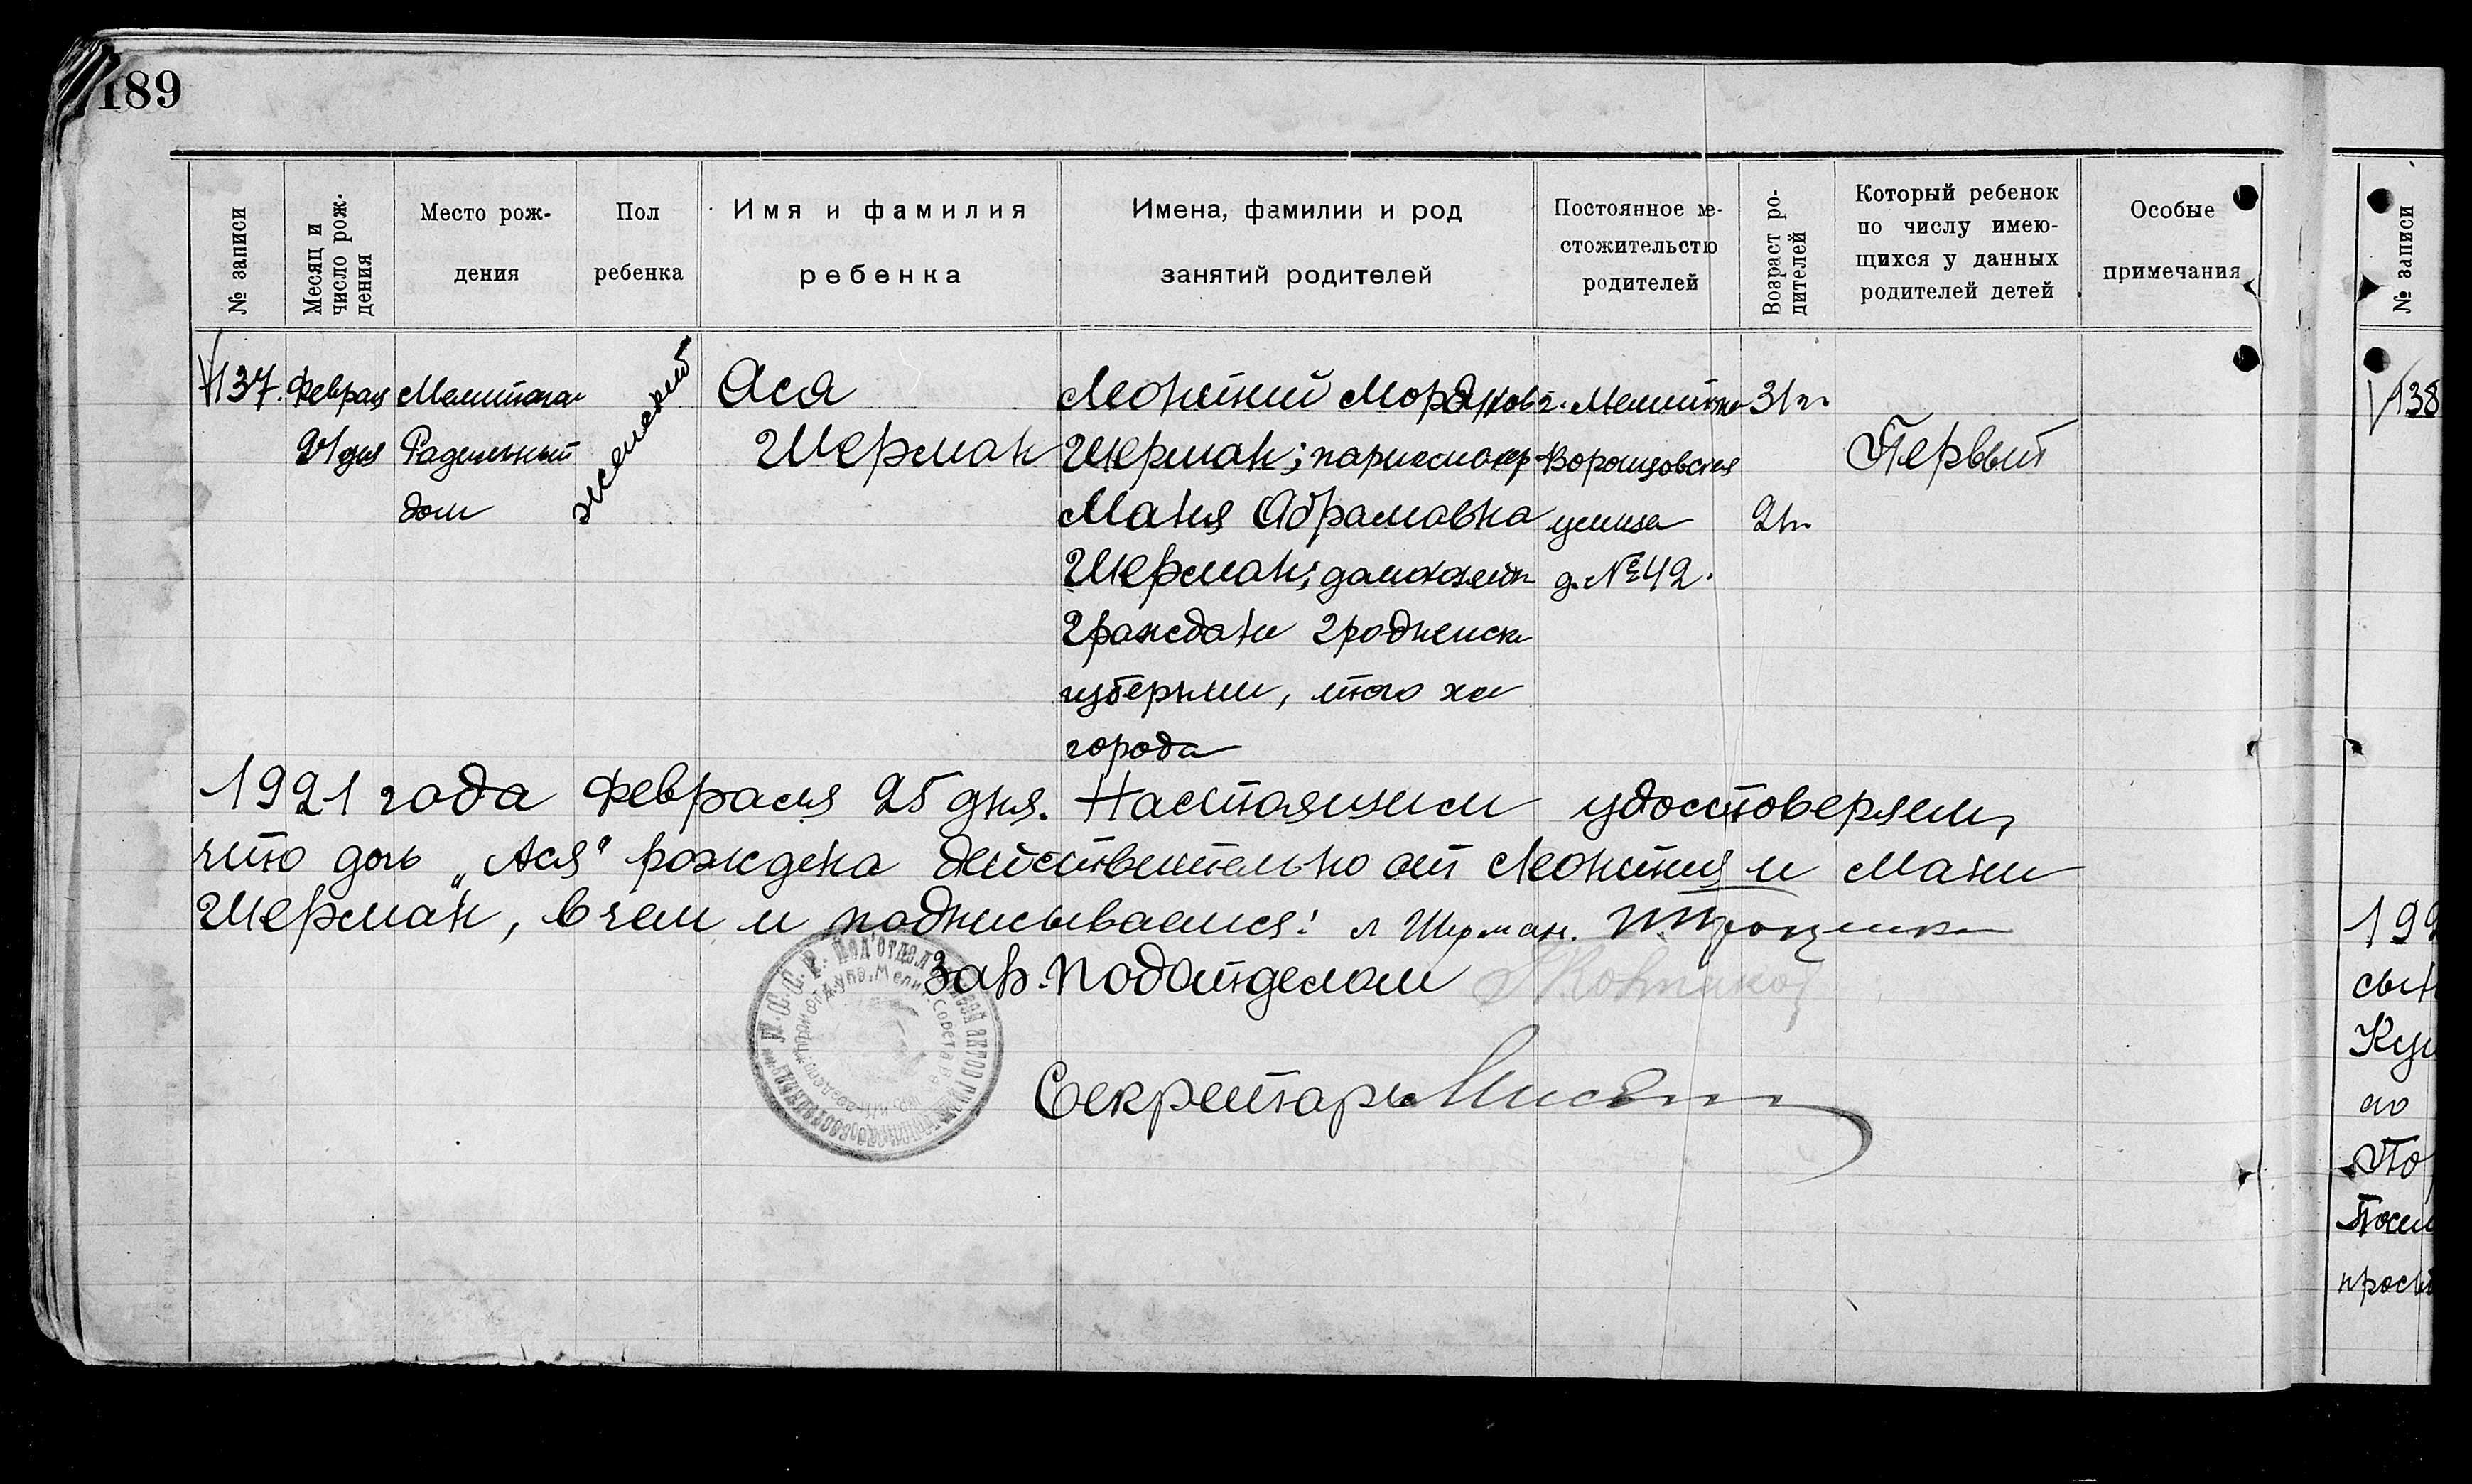 189
№ записи
Месяц и число рождения
Место рож-
дения
Пол
ребенка
Имя и фамилия
ребенка
Имена, фамилии и род
занятий родителей
Постоянное ме-
стожительство
родителей
Возраст ро-
дителей
Который ребенок
по числу имею-
щихся у данных
родителей детей
Особые
примечания
№ записи
137.
Февраля
21 дня
Родильный
дом
женский
Ася
Шерман
Леонтий
Шерман; парикмахер
Маня Абрамовна
Шерман;
Граждане Гродненск
губернии, того же
города
Воронцовская
улица
д. №42.
31 г.
21 г.
Первый
1921 года февраля 25 дня. Настоящим удостоверяем,
что дочь „Ася" рождена действительно от Леонтия и Мани
Шерман, в чем и подписываемся: Л Шерман.
Зав. Подотделом
Секретарь
138
199
Кун
по
По
просьб